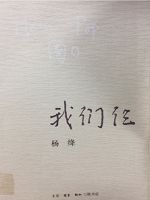 我们仨
杨绛
生活·读书·新知 三联书店